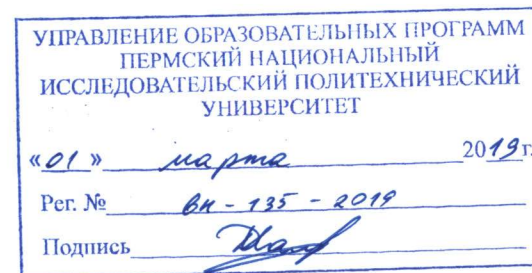 УПРАВЛЕНИЕ ОБРАЗОВАТЕЛЬНЫХ ПРОГРАММ
ПЕРМСКИЙ НАЦИОНАЛЬНЫЙ
ИССЛЕДОВАТЕЛЬСКИЙ ПОЛИТЕХНИЧЕСКИЙ
УНИВЕРСИТЕТ
«01» марта 2019 г.
Рег. № вн - 135 - 2019
Подпись